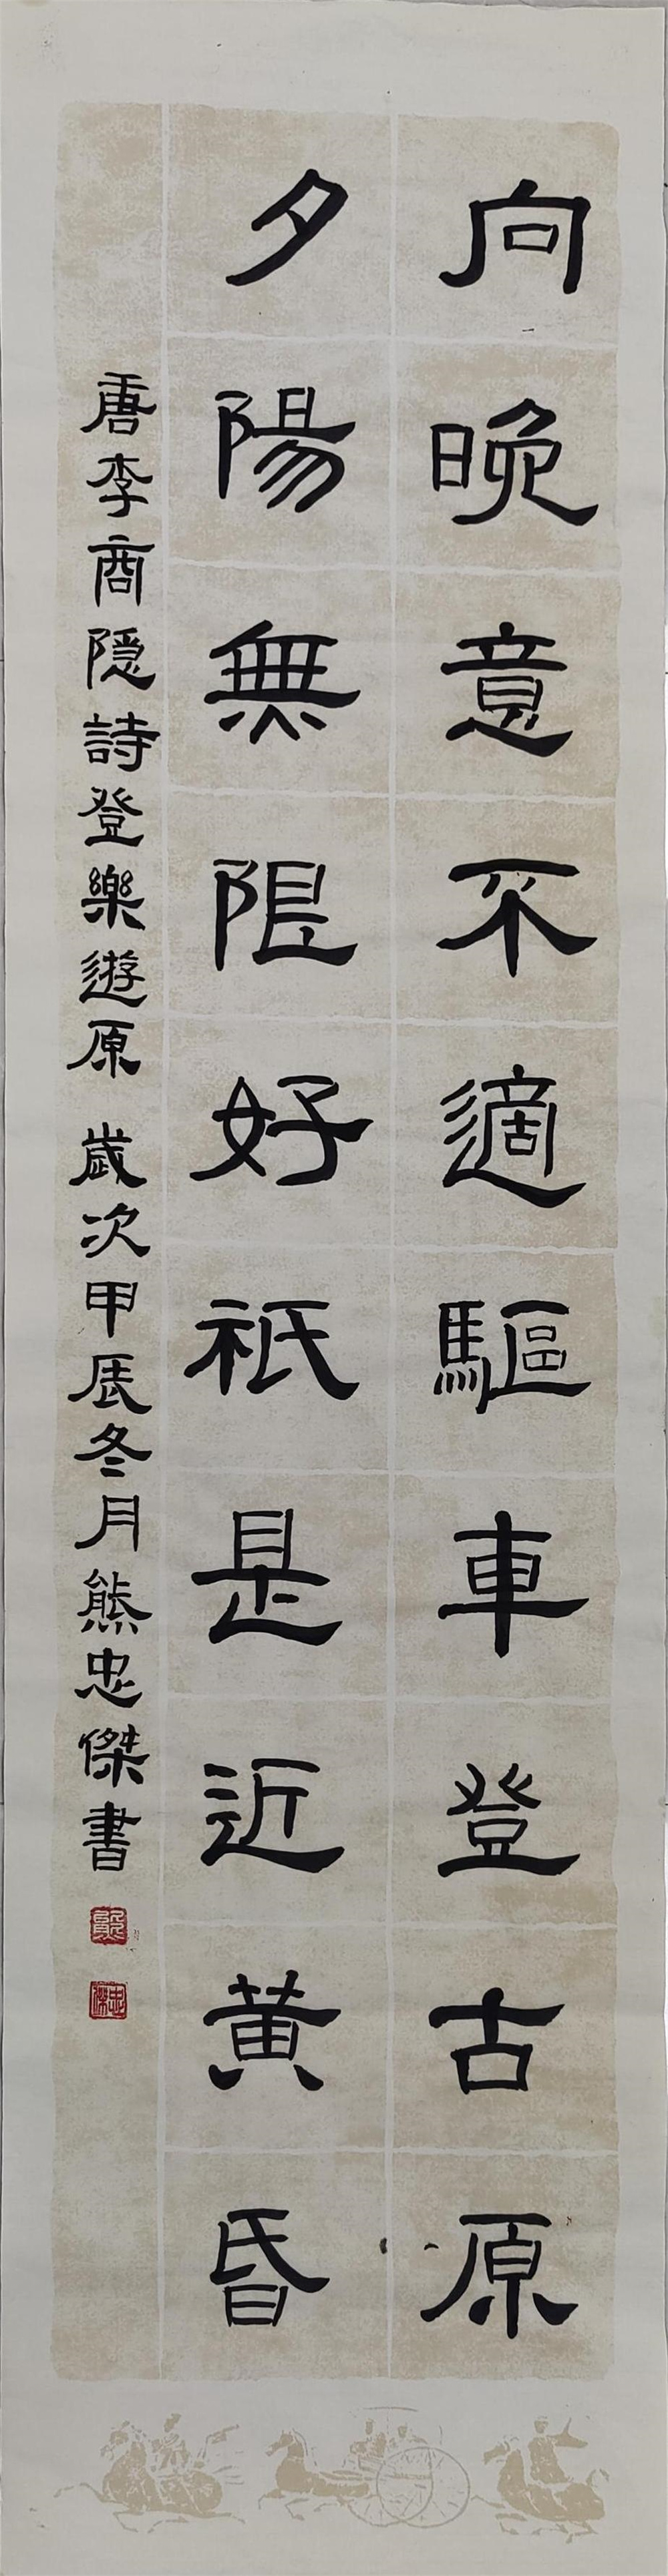 向晚意不適驅車登古原
夕陽無限好祇是近黄昏
唐李商隱詩登樂遊原 歲次甲辰冬月熊忠傑書
忠傑